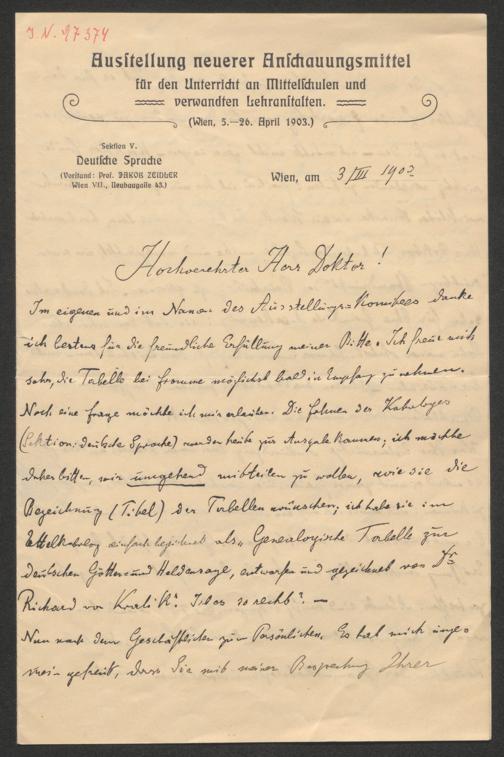 J. N. 97374
Ausstellung neuerer Anschauungsmittel
für den Unterricht an Mittelschulen und
verwandten Lehranstalten.
(Wien, 5.—26. April 1903.)
Sektion V.
Deutsche Sprache
(Vorstand: Prof. JAKOB ZEIDLER
Wien VII., Neubaugasse 43.)
Wien, am 3/III 1903
Hochverehrter Herr Doktor!
Im eigenen und im Namen des Ausstellungs-Komitees danke
ich bestens für die freundliche Erfüllung meiner Bitte. Ich freue mich
sehr, die Tabelle bei Fromme möglichst bald in Empfang zu nehmen.
Noch eine Frage möchte ich mir erlauben. Die Fahnen des Kataloges
(Sektion: deutsche Sprache) werden heute zur Ausgabe kommen; ich möchte
daher bitten, mir umgehend mitteilen zu wollen, wie sie die
Bezeichnung (Titel) der Tabellen wünschen; ich habe sie im
Zettelkatalog einfach bezeichnet als „Genealogische Tabelle zur
deutschen Götter und Heldensage, entworfen und gezeichnet von Dr
Richard von Kralik". Ist es so recht? —
Nun nach dem Geschäftlichen zum Persönlichen. Es hat mich unge-
mein gefreut, dass Sie mit meiner Besprechung Ihrer